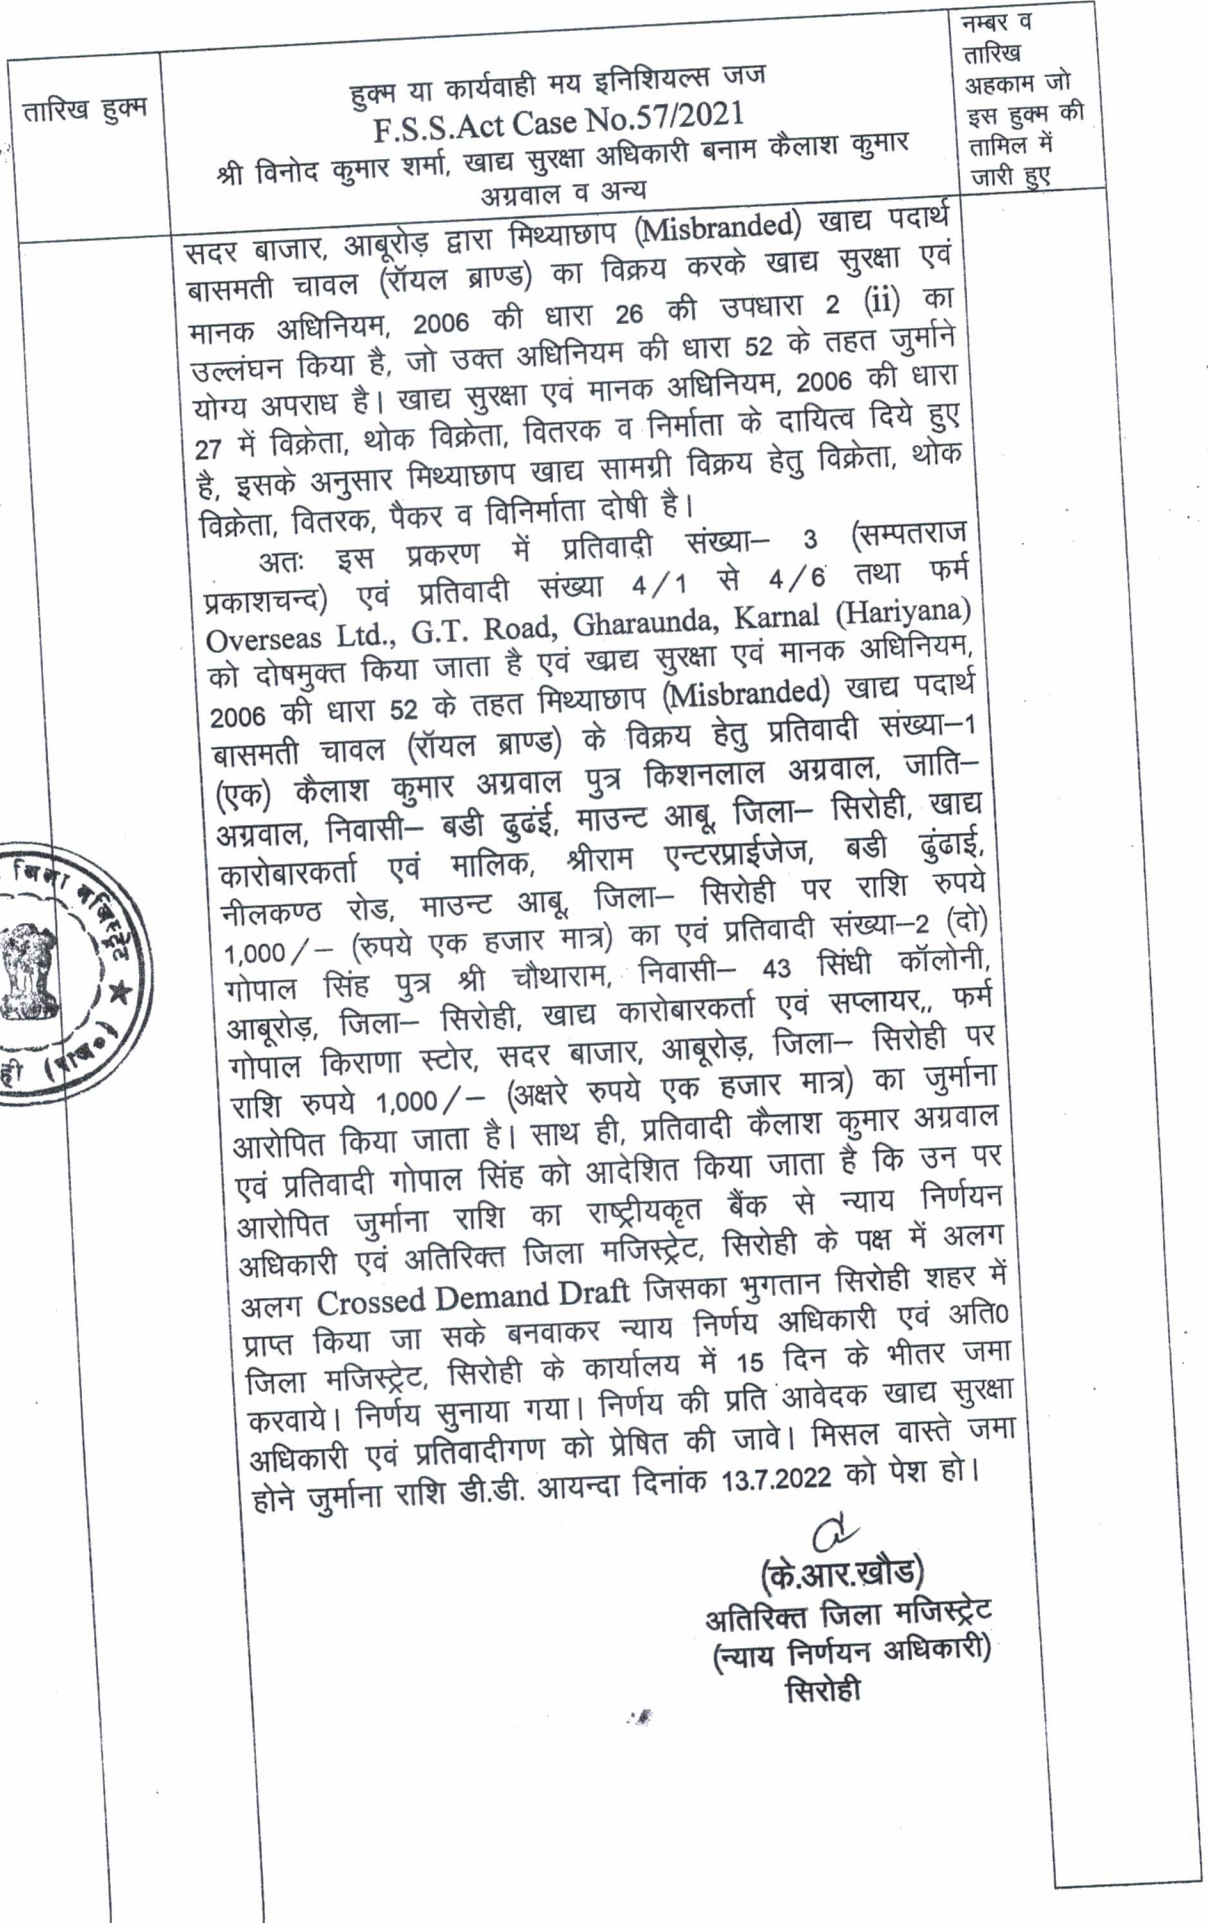 तारिख हुक्म
हुक्म या कार्यवाही मय इनिशियल्स जज
F.S.S.Act Case No.57/2021
श्री विनोद कुमार शर्मा, खाद्य सुरक्षा अधिकारी बनाम कैलाश कुमार
अग्रवाल व अन्य
नम्बर व
तारिख
अहकाम जो
इस हुक्म की
तामिल में
जारी हुए
सदर बाजार, आबूरोड़ द्वारा मिथ्याछाप (Misbranded) खाद्य पदार्थ
बासमती चावल (रॉयल ब्राण्ड) का विक्रय करके खाद्य सुरक्षा एवं
मानक अधिनियम, 2006 की धारा 26 की उपधारा 2 (ii) का
उल्लंघन किया है, जो उक्त अधिनियम की धारा 52 के तहत जुर्माने
योग्य अपराध है। खाद्य सुरक्षा एवं मानक अधिनियम, 2006 की धारा
27 में विक्रेता, थोक विक्रेता, वितरक व निर्माता के दायित्व दिये हुए
है, इसके अनुसार मिथ्याछाप खाद्य सामग्री विक्रय हेतु विक्रेता, थोक
विक्रेता, वितरक, पैकर व विनिर्माता दोषी है।
अतः इस प्रकरण में प्रतिवादी संख्या– 3 (सम्पतराज
प्रकाशचन्द) एवं प्रतिवादी संख्या 4/1 से 4/6 तथा फर्म
Overseas Ltd., G.T. Road, Gharaunda, Karnal (Hariyana)
को दोषमुक्त किया जाता है एवं खाद्य सुरक्षा एवं मानक अधिनियम,
2006 की धारा 52 के तहत मिथ्याछाप (Misbranded) खाद्य पदार्थ
बासमती चावल (रॉयल ब्राण्ड) के विक्रय हेतु प्रतिवादी संख्या–1
(एक) कैलाश कुमार अग्रवाल पुत्र किशनलाल अग्रवाल, जाति–
अग्रवाल, निवासी– बडी ढुढंई, माउन्ट आबू, जिला– सिरोही, खाद्य
कारोबारकर्ता एवं मालिक, श्रीराम एन्टरप्राईजेज, बडी ढुंढाई,
नीलकण्ठ रोड, माउन्ट आबू, जिला– सिरोही पर राशि रुपये
1,000/– (रुपये एक हजार मात्र) का एवं प्रतिवादी संख्या–2 (दो)
गोपाल सिंह पुत्र श्री चौथाराम, निवासी– 43 सिंधी कॉलोनी,
आबूरोड़, जिला– सिरोही, खाद्य कारोबारकर्ता एवं सप्लायर,, फर्म
गोपाल किराणा स्टोर, सदर बाजार, आबूरोड़, जिला– सिरोही पर
राशि रुपये 1,000/– (अक्षरे रुपये एक हजार मात्र) का जुर्माना
आरोपित किया जाता है। साथ ही, प्रतिवादी कैलाश कुमार अग्रवाल
एवं प्रतिवादी गोपाल सिंह को आदेशित किया जाता है कि उन पर
आरोपित जुर्माना राशि का राष्ट्रीयकृत बैंक से न्याय निर्णयन
अधिकारी एवं अतिरिक्त जिला मजिस्ट्रेट, सिरोही के पक्ष में अलग
अलग Crossed Demand Draft जिसका भुगतान सिरोही शहर में
प्राप्त किया जा सके बनवाकर न्याय निर्णय अधिकारी एवं अति0
जिला मजिस्ट्रेट, सिरोही के कार्यालय में 15 दिन के भीतर जमा
करवाये। निर्णय सुनाया गया। निर्णय की प्रति आवेदक खाद्य सुरक्षा
अधिकारी एवं प्रतिवादीगण को प्रेषित की जावे। मिसल वास्ते जमा
होने जुर्माना राशि डी.डी. आयन्दा दिनांक 13.7.2022 को पेश हो।
(के.आर.खौड)
अतिरिक्त जिला मजिस्ट्रेट
(न्याय निर्णयन अधिकारी)
सिरोही
जिला मजिस्ट्रेट ★ (राज०)